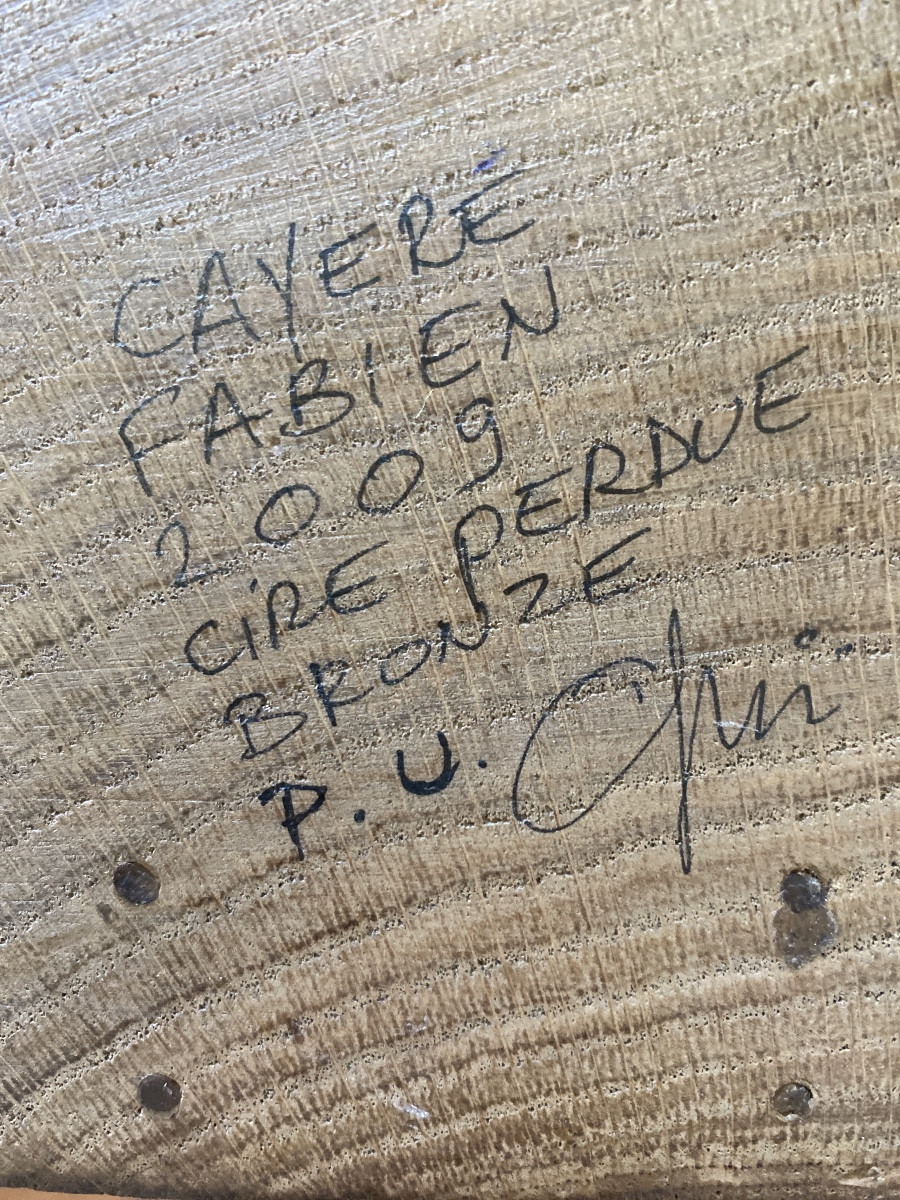 CAYERE
FABIEN
2009
CiRE PERDUE
BRONZE
P.U.